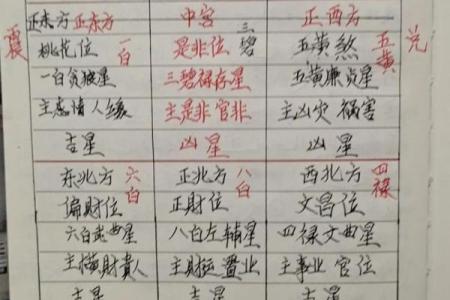 正东方 正东方 中宫 正西方
震 桃花位 一白 是非位 三碧 五黄煞 五黄 兑
一白贪狼星 三碧禄存星 五黄廉贞星
主感情人缘 主是非官非 主凶灾祸害
吉星 凶星 凶星
东北方 六白 正北方 八白 西北方 四禄
偏财位 正财位 文昌位
六白武曲星 八白左辅星 四禄文曲星
主横财貴人 主财运置业 主事业官位
吉星 吉星 吉星